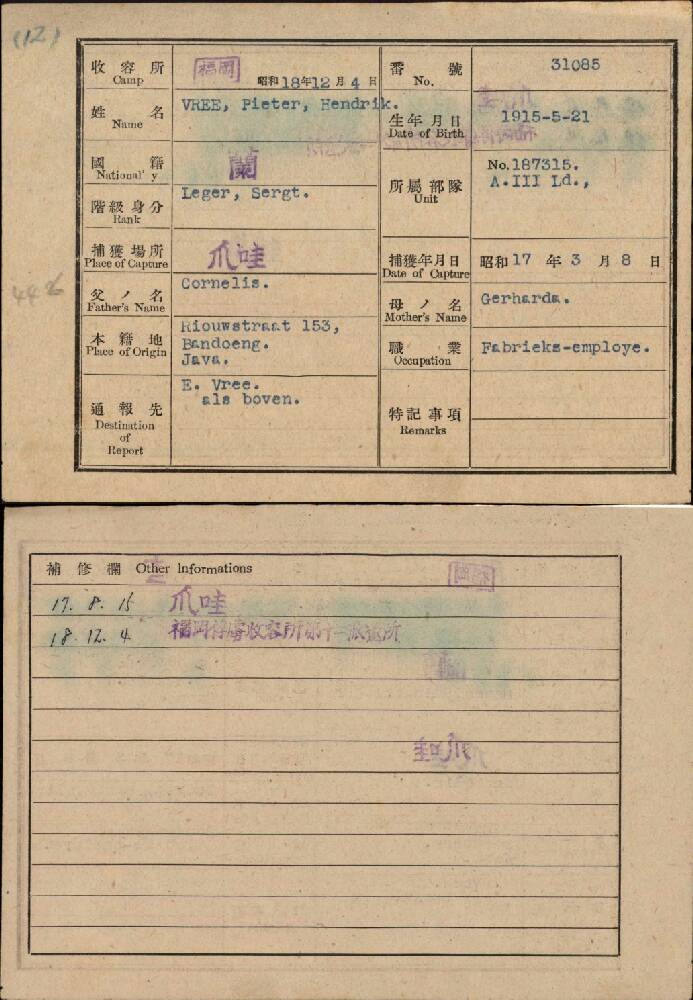 (12)
收容所 Camp 福岡 昭和18年12月4日
番號 No. 31085
姓名 Name VREE, Pieter, Hendrik.
生年月日 Date of Birth 1915-5-21
國籍 National'y 蘭
所屬部隊 Unit No.187315.
A.III Ld.,
階級身分 Rank Leger, Sergt.
捕獲場所 Place of Capture 爪哇
捕獲年月日 Date of Capture 昭和17年3月8日
父ノ名 Father's Name Cornelis.
母ノ名 Mother's Name Gerharda.
本籍地 Place of Origin Riouwstraat 153,
Bandoeng.
Java.
職業 Occupation Fabrieks-employe.
通報先 Destination of Report E. Vree.
als boven.
特記事項 Remarks
補修欄 Other Informations
17. 8. 15 爪哇
18. 12. 4 福岡俘虜收容所第十一派遣所